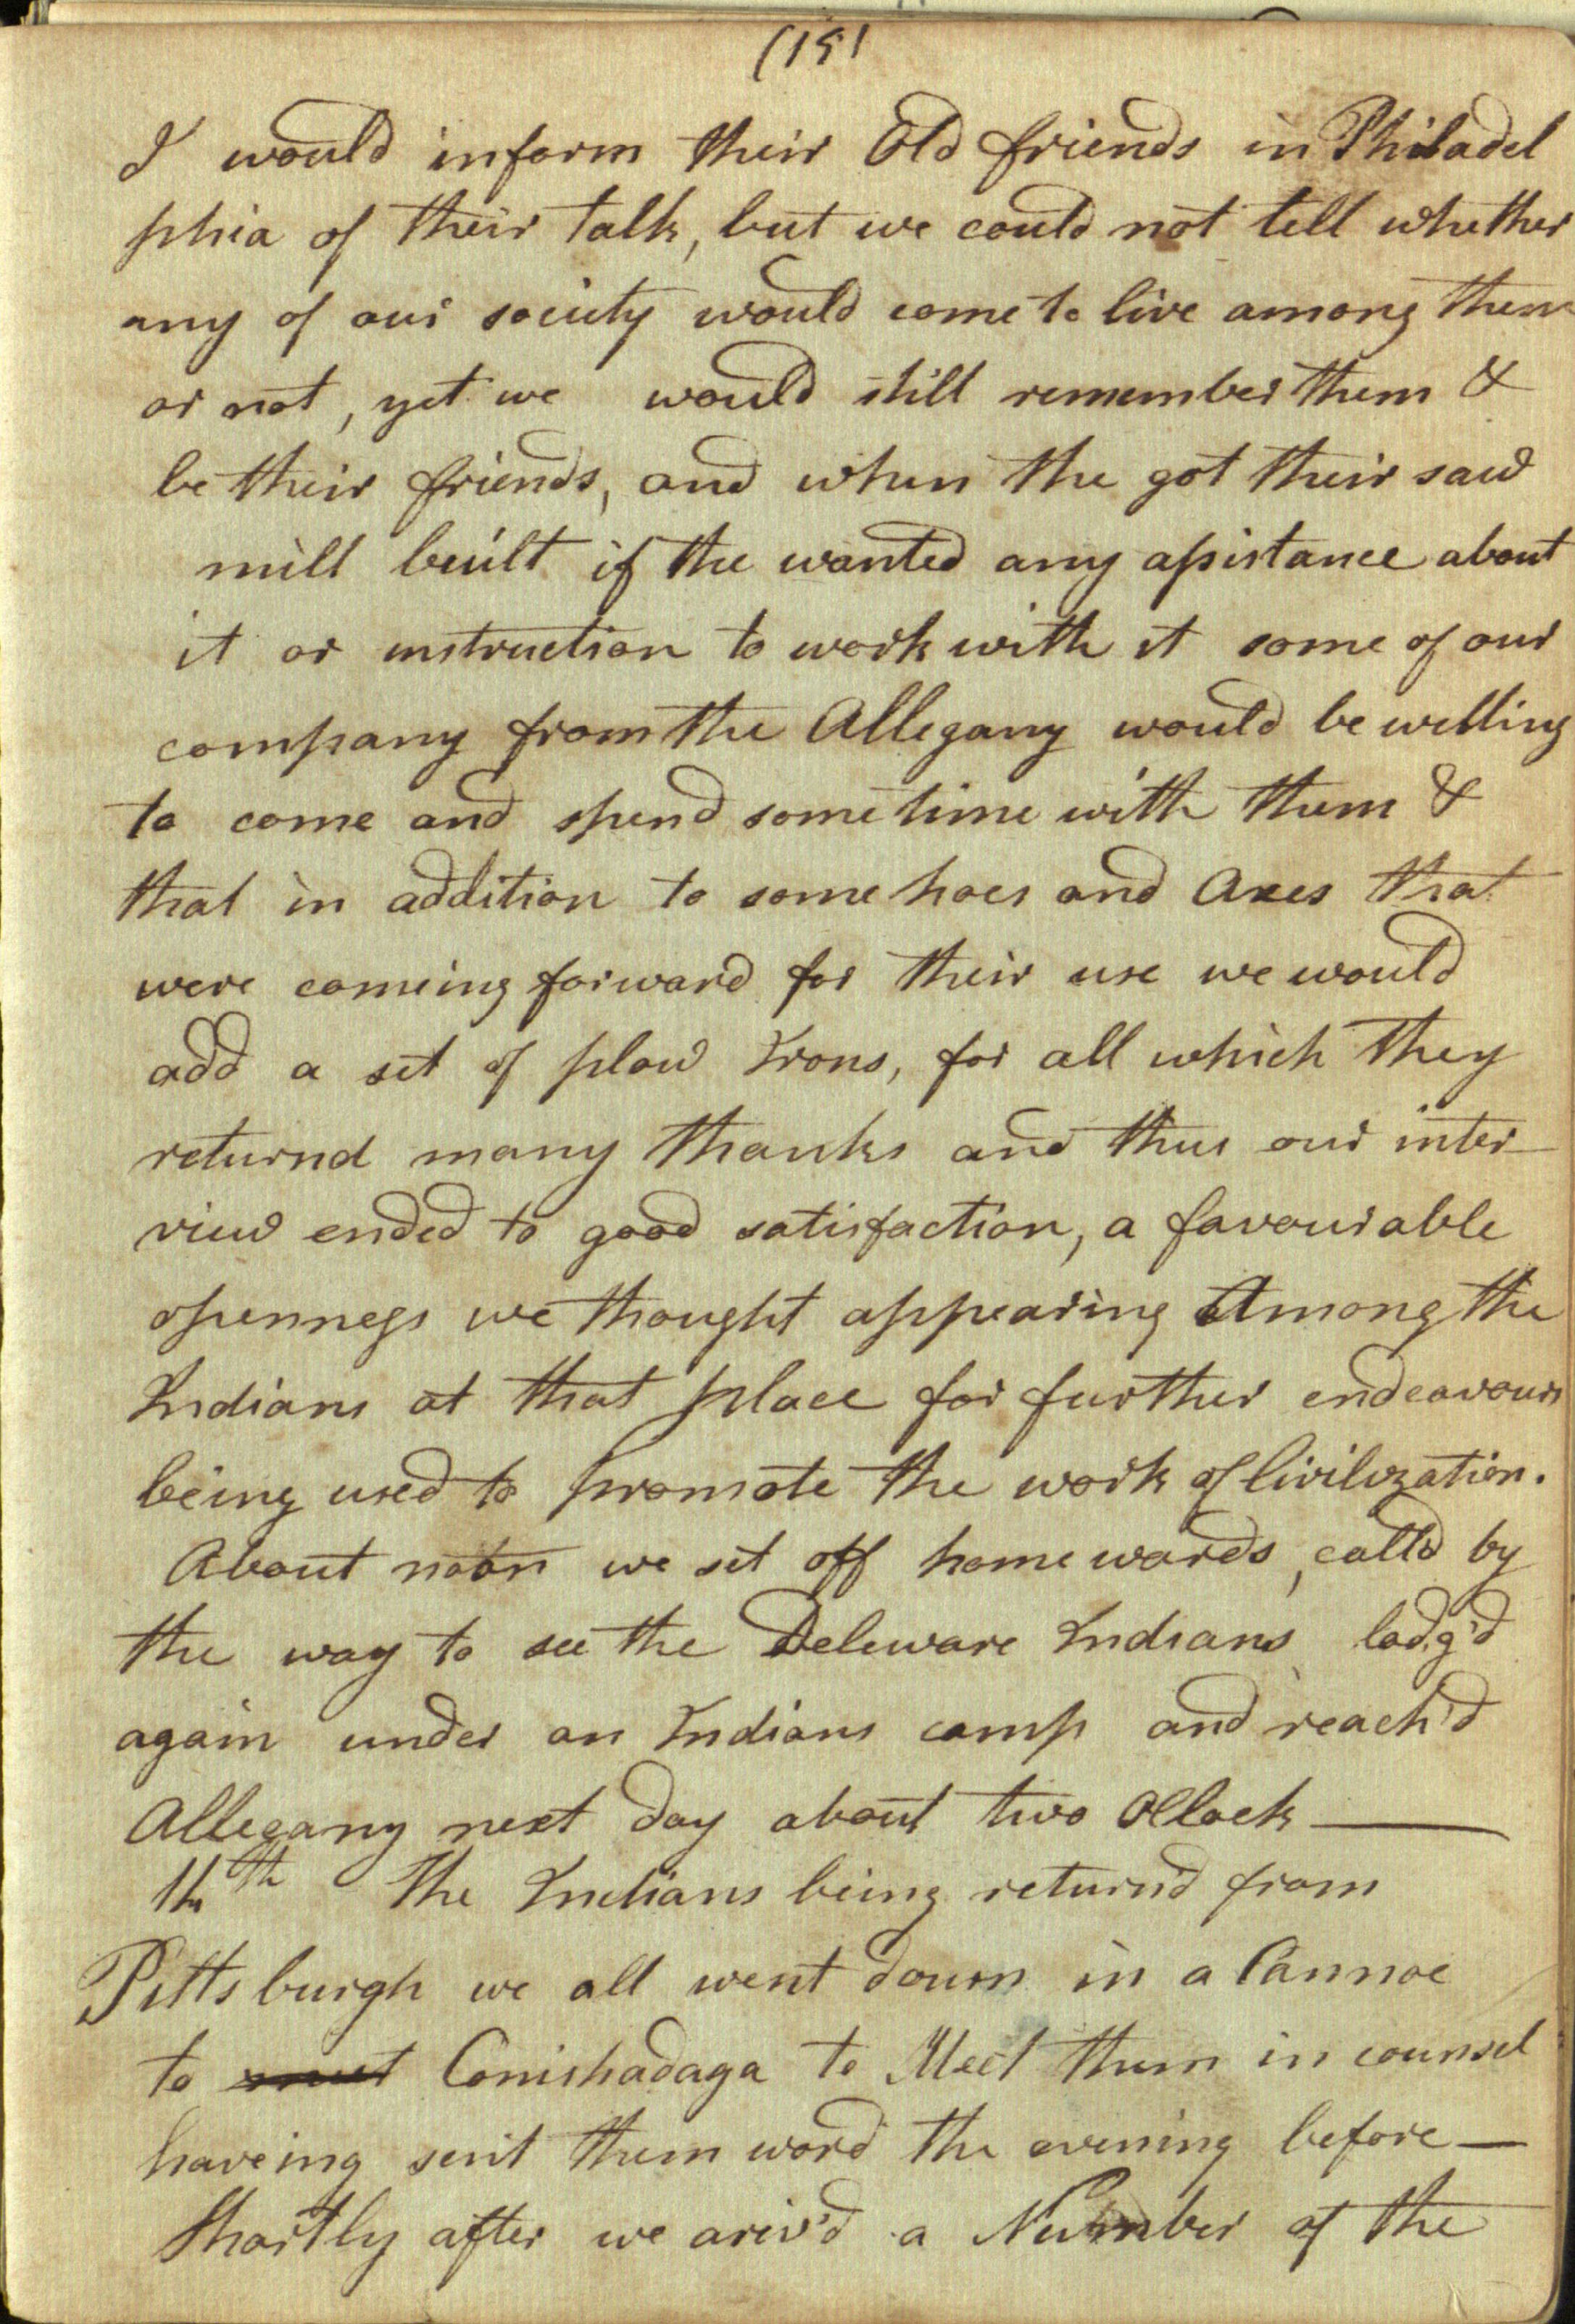 (19)
I would inform their Old friends in Philadel
phia of their talk, but we could not tell whether
any of our society would come to live among them
or not, yet we would still remember them &
be their friends, and when the got their saw
mill built if the wanted any assistance about
it or instruction to work with it some of our
company from the Allegany would be willing
to come and spend some time with them &
that in addition to some hoes and Axes that
were comeing forward for their use we would
add a set of plow Irons, for all which they
returnd many thanks and thus our inter-
view ended to good satisfaction, a favourable
openness we thought appearing Among the
Indians at that place for further endeavours
being used to promote the work of Civilization.
About noon we set off homewards, call'd by
the way to see the Deleware Indians lodg'd
again under an Indians camp and reach'd
Allegany next day about two oClock —
th The Indians being return'd from
Pittsburgh we all went down in a Cannoe
to meet Conishadaga to Meet them in counsel
haveing sent them word the evening before —
Shortly after we ariv'd a Number of the